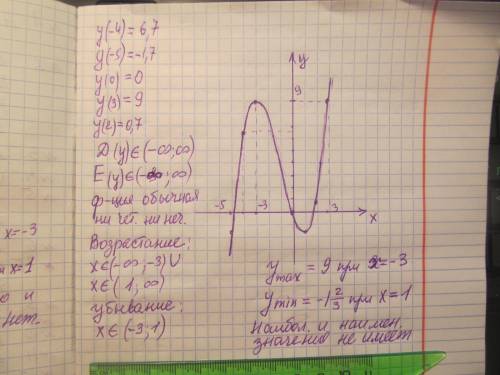 y(-4) = 6,7
y(-5) = -1,7
y(0) = 0
y(3) = 9
y(2) = 0,7
D(y)∈(-∞;∞)
E(y)∈(-∞;∞)
ф-ция обычная
ни чёт. ни неч.
Возрастание:
x∈(-∞;-3)∪
x∈(1;∞)
убывание:
x∈(-3;1)
y
9
-5
-3
3
x
y max = 9 при x=-3
y min = -1 2/3 при x=1
Наибол. и наимен.
значения не имеет
x=-3
x=1
и
нет.